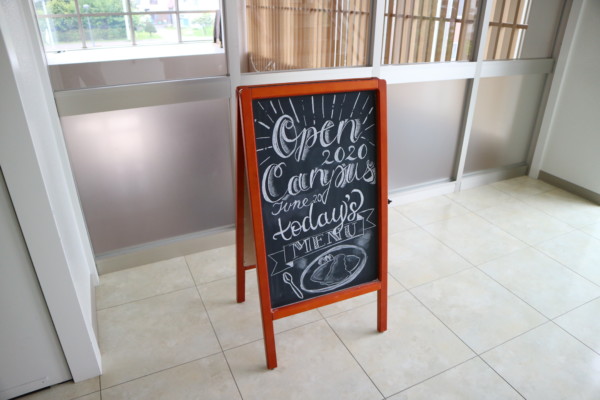 Open
2020
Campus
June 20
today's
MENU